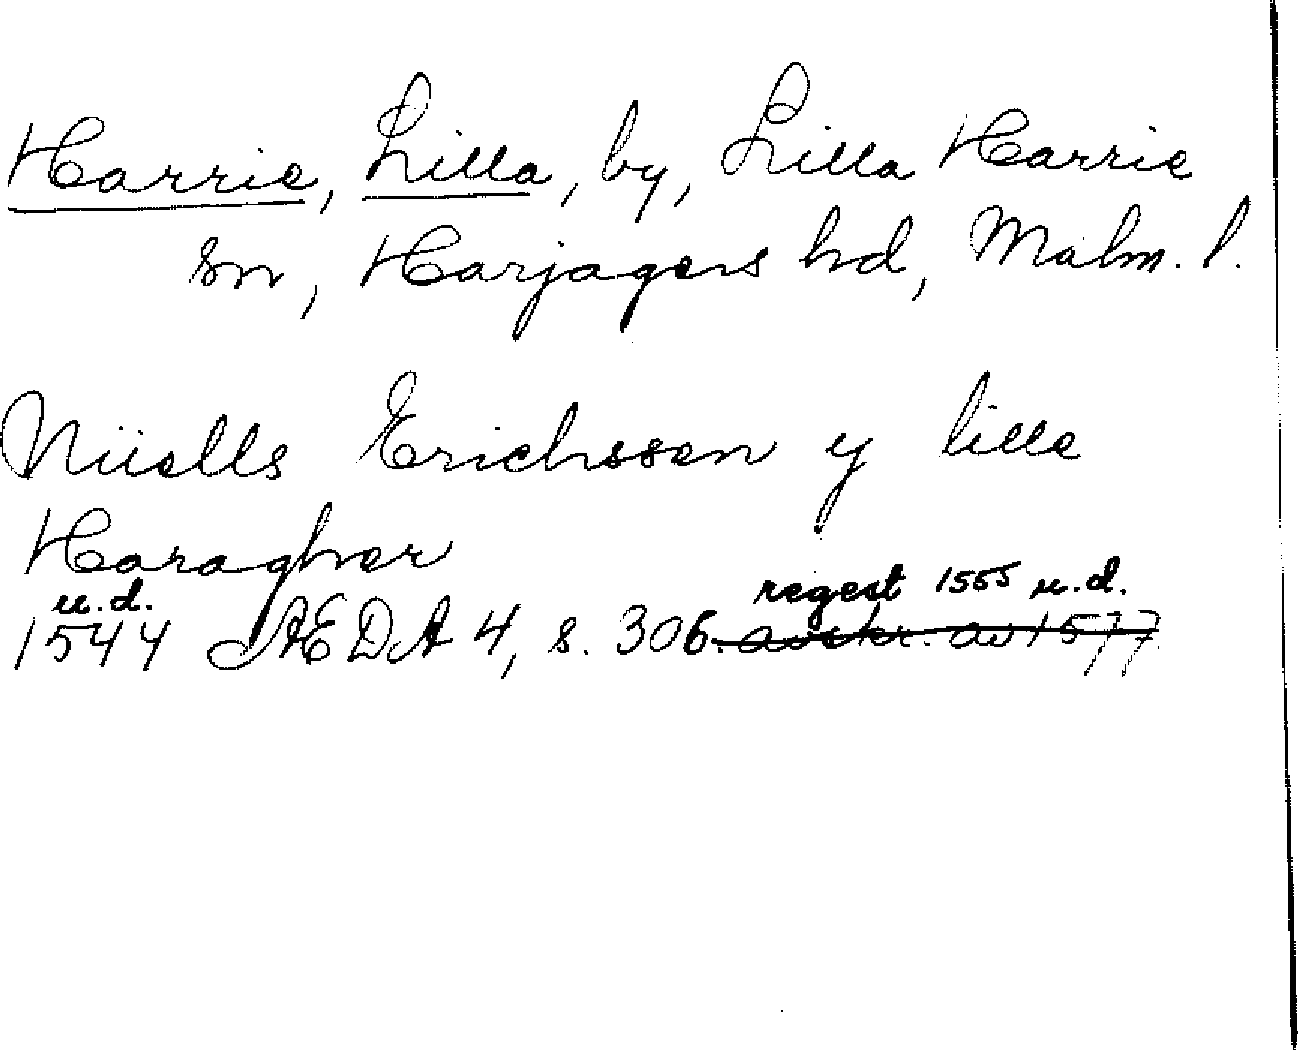 Harrie, Lilla, by, Lilla Harrie
sn, Harjagers hd, Malm. l.
Niiells Erichssen y lille
Haragher
u.d. regest 1555 u.d.
1544 ÆDA 4, s. 306. avskr. av 1577